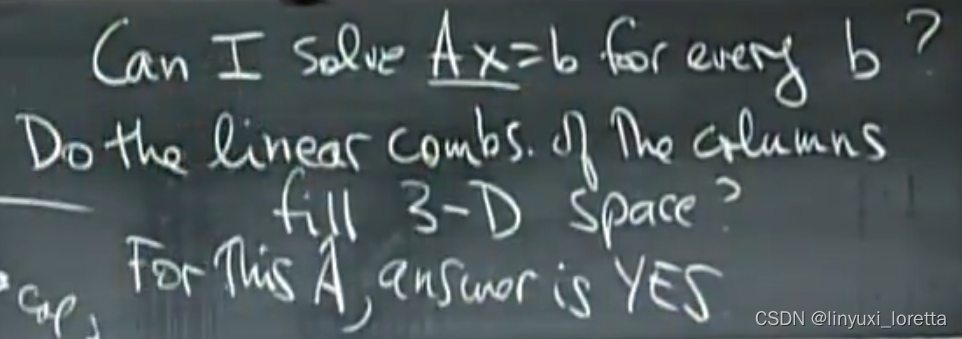 Can I solve Ax=b for every b?
Do the linear combs. of the columns
fill 3-D space?
For This A, answer is YES
CSDN @linyuxi_loretta